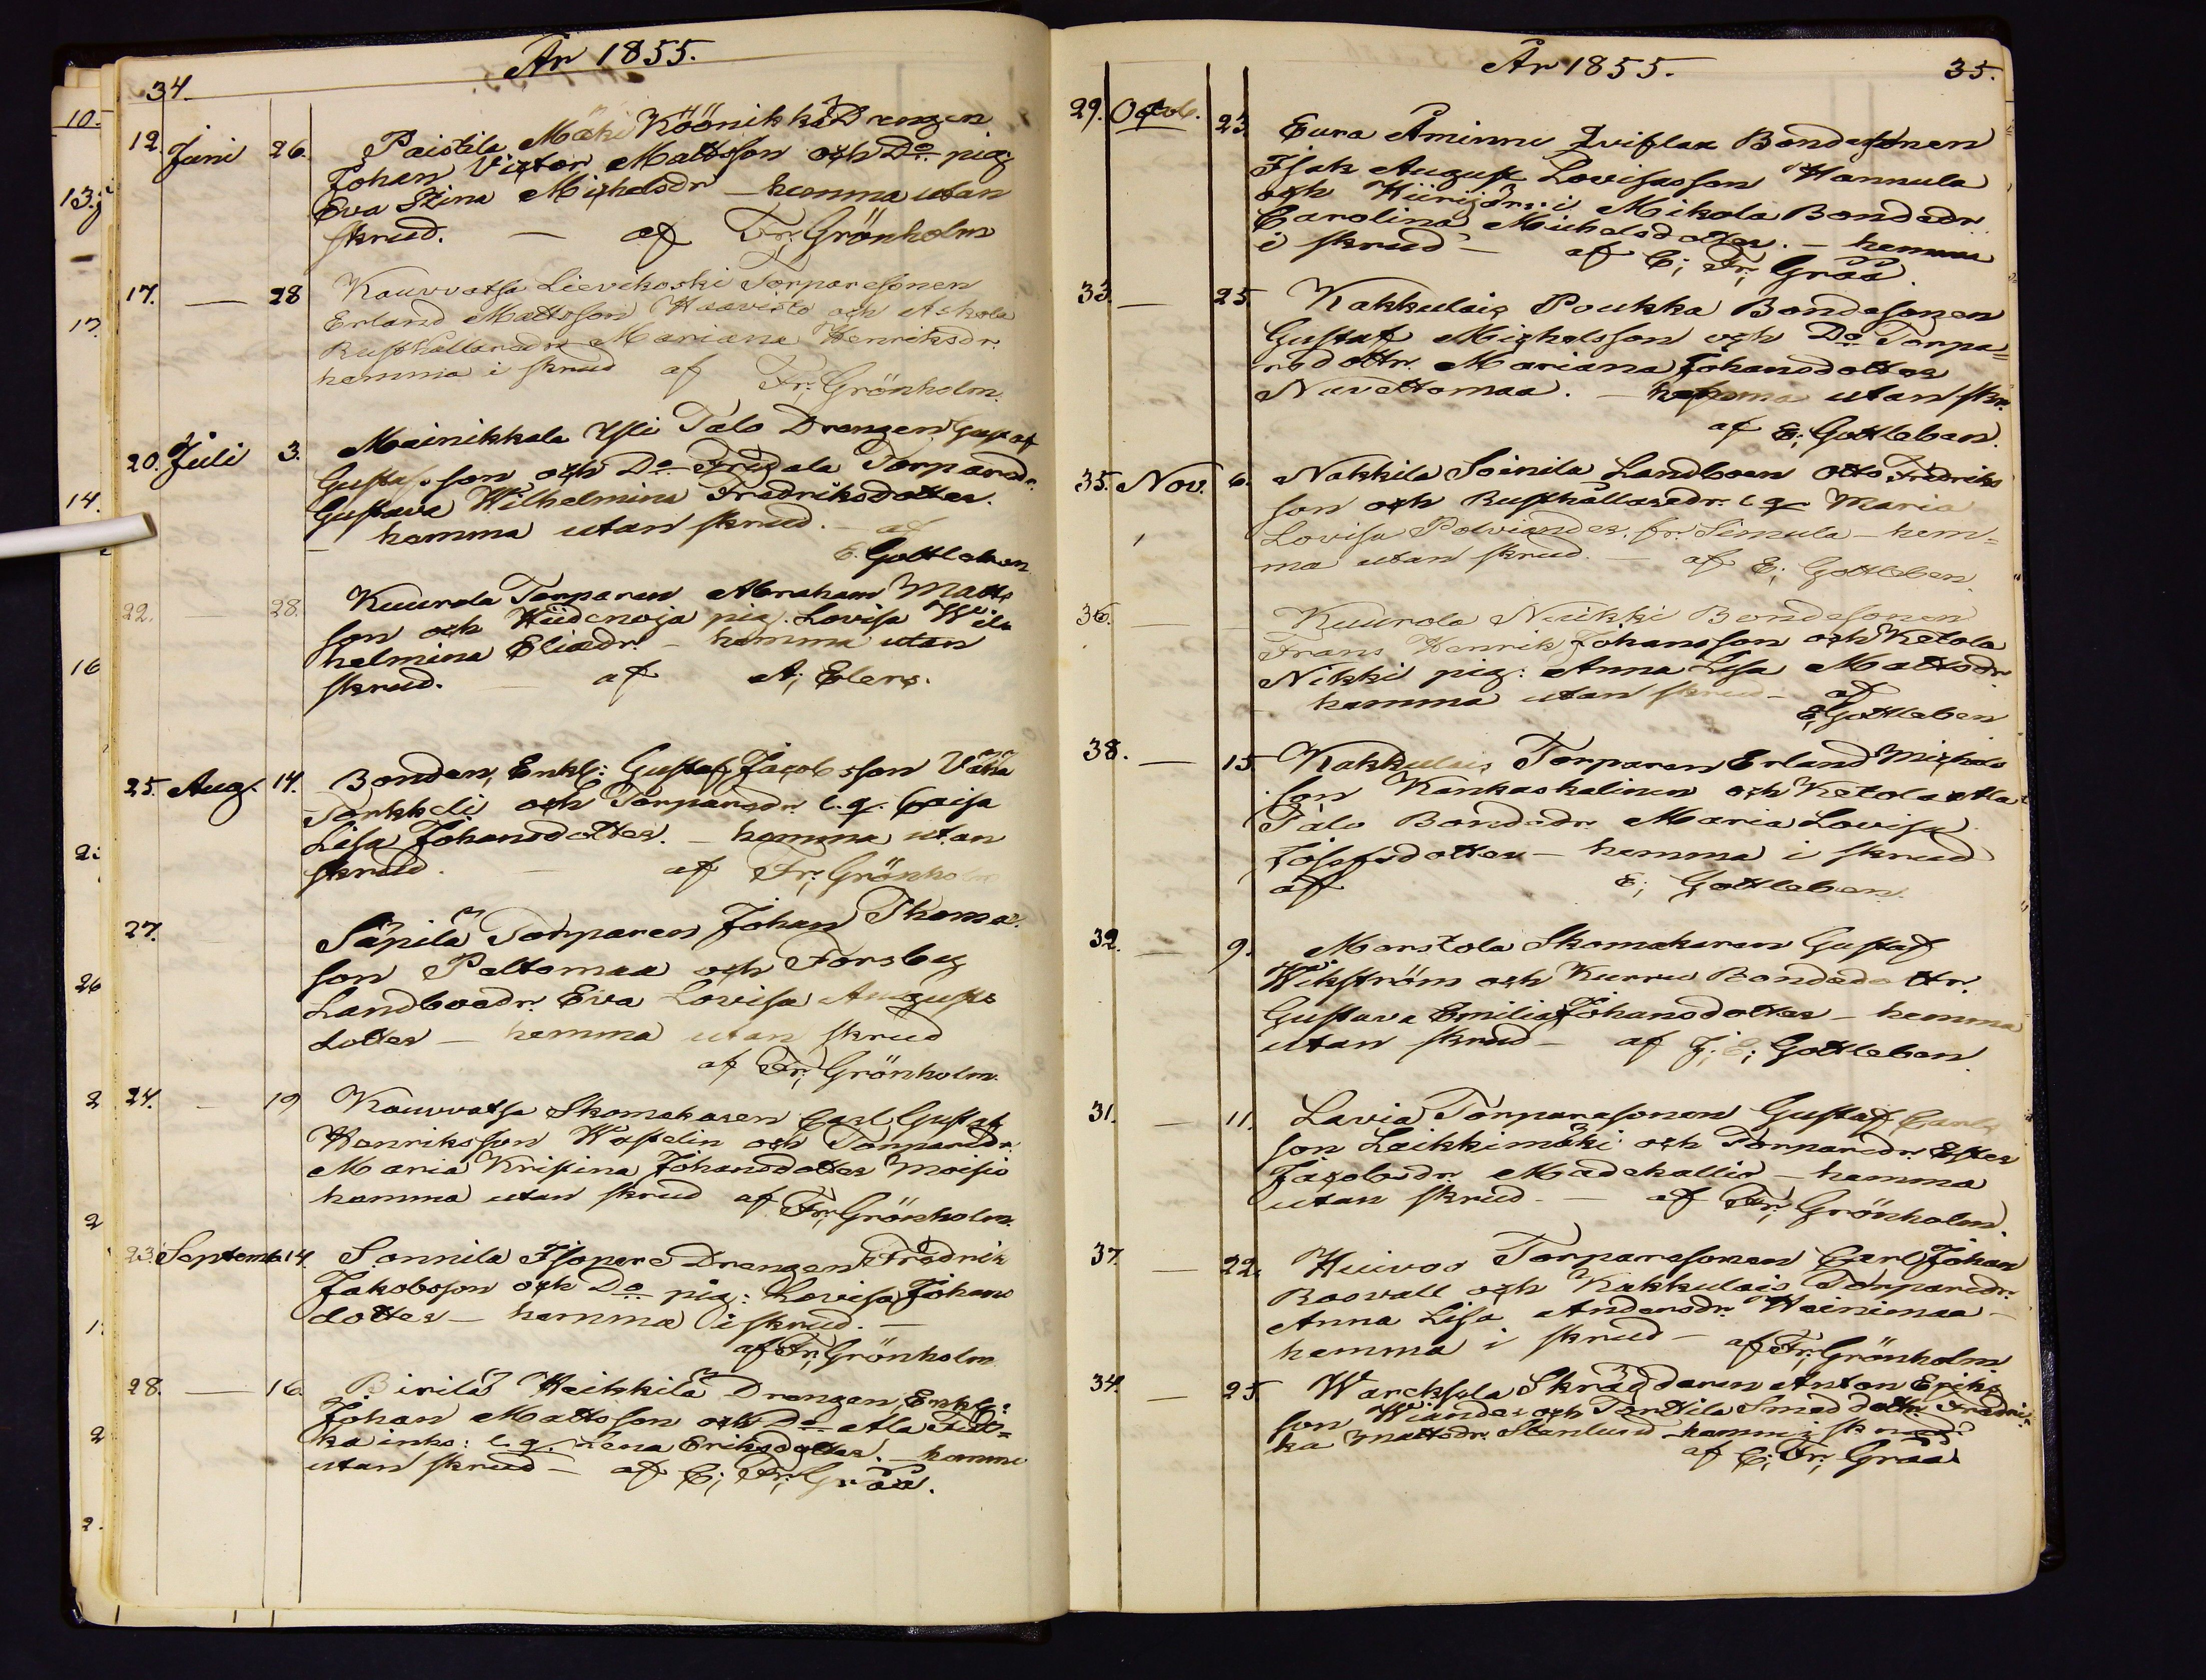 År 1855.
34.
12. Juni 26. Paistila Mäki Köönikkä Drengen
Johan Victor Mattsson och Do pig.
Eva Stina Michelsdr – hemma utan
skrud. – af Fr; Grönholm
17. — 28 Kauvvatsa Lievikoski Torparesonen
Erland Mattsson Haavisto och Askola
Rusthållaredr Mariana Henriksdr.
hemma i skrud af Fr; Grönholm.
20. Juli 3. Mainikkala Yli Talo Drengen Gustaf
Gustafsson och Do Frigala Torparedr.
Gustava Wilhelmina Fredriksdotter.
– hemma utan skrud. – af
E. Gottleben
22. — 28. Kuurola Torparen Abraham Matts
son och Hiidenoja pig. Lovisa Wil
helmina Eliædr. – hemma utan
skrud. – af A; Elers.
25. Aug. 14. Bonden, Enkl: Gustaf Jacobsson Vähä
Torkkeli och Torparedr. l.q. Caisa
Lisa Johansdotter. – hemma utan
skrud. – af Fr; Grönholm
27. Säpilä Torparen Johan Thomas
son Peltomaa och Forsby
Landboedr. Eva Lovisa Augusts
dotter – hemma utan skrud
af Fr; Grönholm.
24. — 19 Kauvvatsa Skomakaren Carl Gustaf
Henriksson Wastelin och Torparedr.
Maria Kristina Johansdotter Moisio
hemma utan skrud af Fr; Grönholm.
23. Septemb. 14. Sonnila Isopere Drengen Fredrik
Jakobsson och Do pig: Lovisa Johans
dotter – hemma i skrud. –
af Fr; Grönholm
28. — 16. Birilä Heikkilä Drengen, Enkl:
Johan Mattsson och Do Ala
ka inhs: l.q. Lena Eriksdotter. – hemma
utan skrud – af C; Fr; Gråå.
År 1855. 35.
29. Octob. 23. Eura Åminne Qviflax Bondesonen
Isak August Lovisasson Hannula
och Hiirijärvi Mikola Bondedr
Carolina Michelsdotter. – hemma
i skrud – af C; Fr; Gråå.
33. — 25. Kakkulais Poukka Bondesonen
Gustaf Michelsson och Do Torpa=
redottr. Mariana Johansdotter
Nuvettomaa. – hemma utan skr.
af E; Gottleben.
35. Nov. 6. Nakkila Soinila Landboen Otto Fredriks
son och Rusthållaredr. l.q. Maria
Lovisa Polviander fr. Simula – hem=
ma utan skrud. – af E; Gottleben
36. — Kuurola Nukki Bondesonen
Frans Henrik Johansson och Ketola
Nikki pig: Anna Lisa Mattsdr.
– hemma utan skrud – af
E; Gottleben
38. — 15. Kakkulais Torparen Erland Michels
son Kankaskalinen och Ketola Ala
Talo Bondedr. Maria Lovisa
Josefsdotter – hemma i skrud
af E; Gottleben.
32. — 9. Marstola Skomakaren Gustaf
Wikström och Kurru Bondedottr.
Gustava Emilia Johansdotter – hemma
utan skrud – af J; E; Gottleben.
31. — 11. Lavia Torparesonen Gustaf Carls
son Leikkimäki och Torparedr. Ester
Jacobsdr. Madekallio – hemma
utan skrud. – af Fr; Grönholm.
37. — 22. Huivoo Torparesonen Carl Johan
Roovall och Kakkulais Torparedr.
Anna Lisa Andersdr. Heinimaa –
hemma i skrud – af Fr; Grönholm
34. — 25. Warcksula Skräddaren Anton Eriks
son Wiander och Torttila Smeddottr. Fredri=
ka Mattsdr. Stenlund hemma i skrud
af C; Fr; Gråå